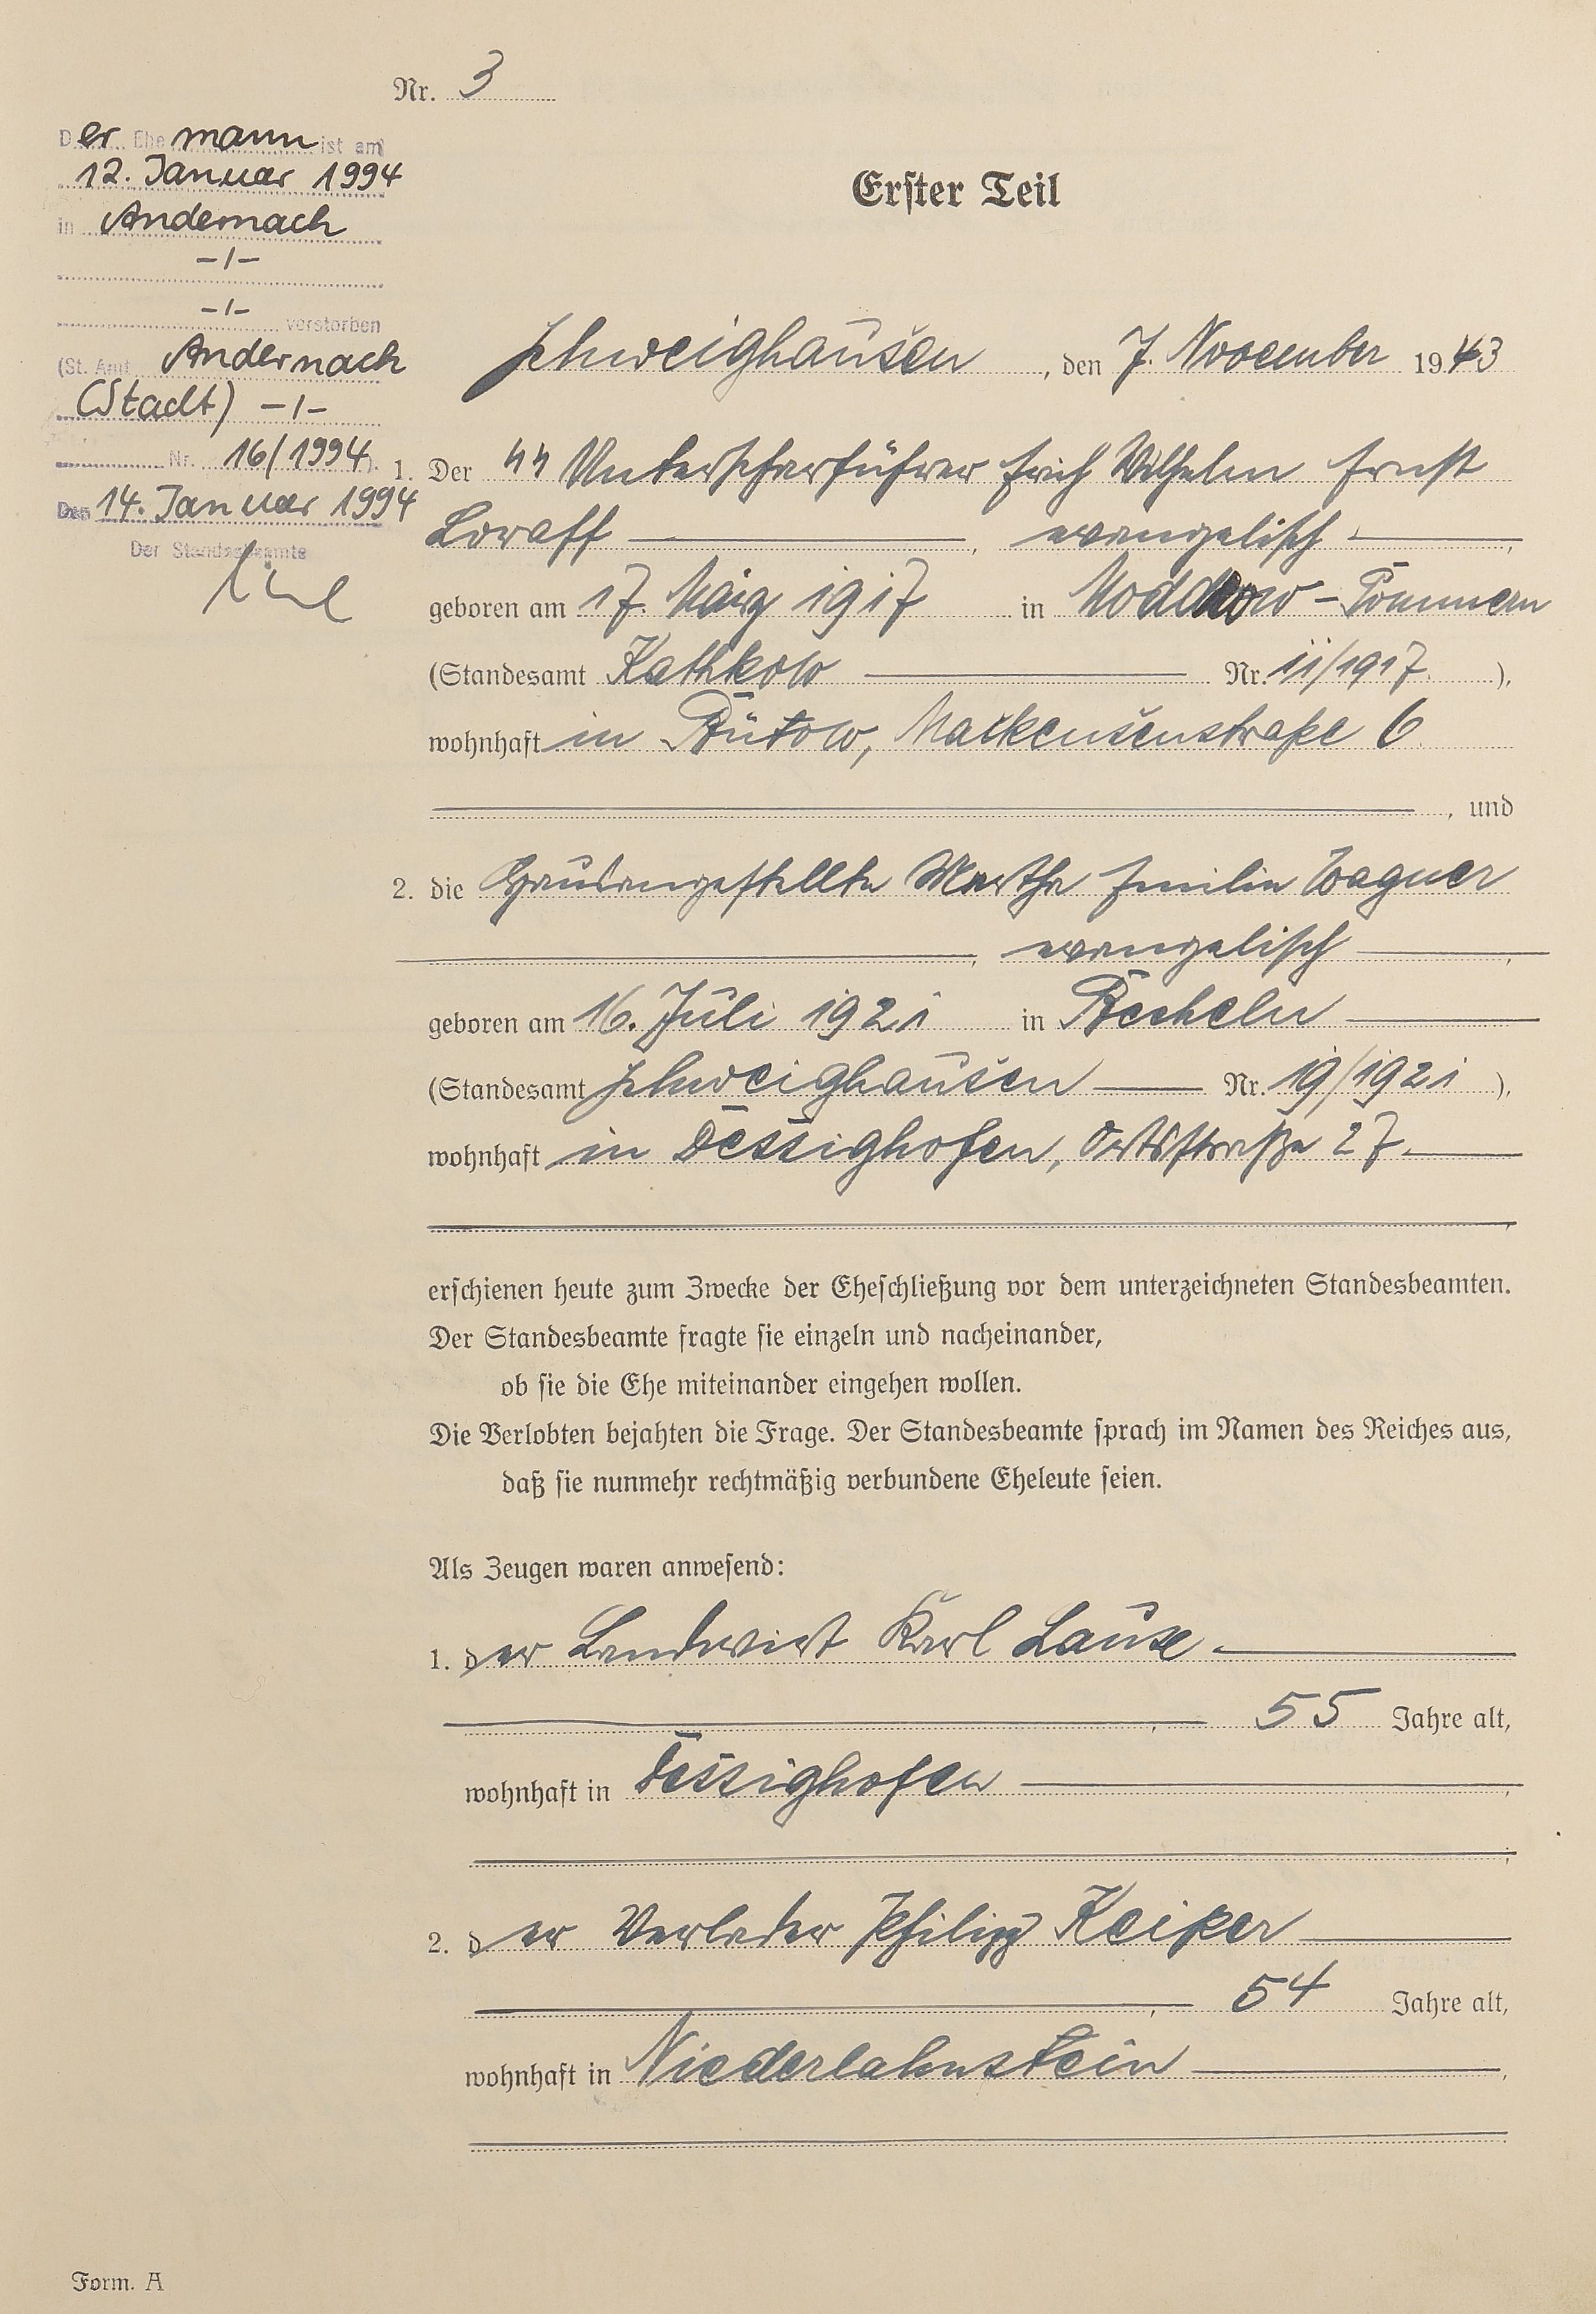 Nr. 3
Der Ehe mann ist am
12. Januar 1994
in Andernach
-/-
-/- verstorben
(St. Amt Andernach
(Stadt) -/-
Nr. 16/1994).
Den 14. Januar 1994
Der Standesbeamte
Erster Teil
Schweighausen, den 7. November 1943
1. Der SS Unterscharführer Erich Wilhelm Ernst
Loraff, evangelisch,
geboren am 17. März 1917 in Moddrow-Pommern
(Standesamt Kathkow Nr. 11/1917),
wohnhaft in Bütow, Mackensenstraße 6
, und
2. die Hausangestellte Martha Emilie Wagner
, evangelisch,
geboren am 16. Juli 1921 in Becheln
(Standesamt Schweighausen Nr. 19/1921),
wohnhaft in Dessighofen, Ortsstraße 27.
erschienen heute zum Zwecke der Eheschließung vor dem unterzeichneten Standesbeamten.
Der Standesbeamte fragte sie einzeln und nacheinander,
ob sie die Ehe miteinander eingehen wollen.
Die Verlobten bejahten die Frage. Der Standesbeamte sprach im Namen des Reiches aus,
daß sie nunmehr rechtmäßig verbundene Eheleute seien.
Als Zeugen waren anwesend:
1. der Landwirt Karl Lause
, 55 Jahre alt,
wohnhaft in Dessighofen,
2. der Verlader Philipp Keiper
, 54 Jahre alt,
wohnhaft in Niederlahnstein,
Form. A